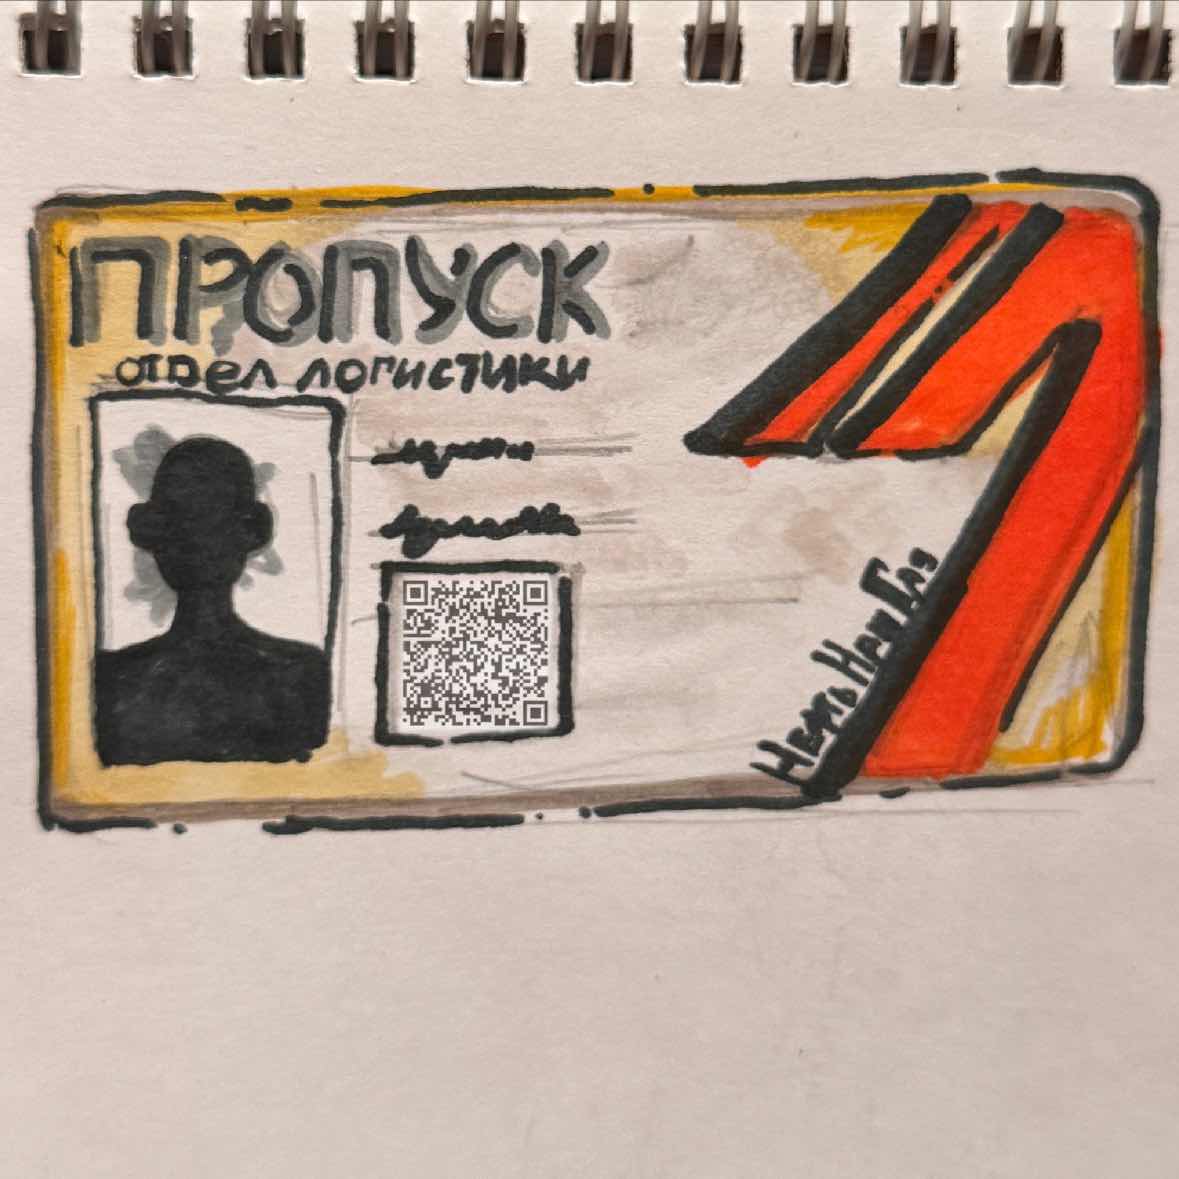 ПРОПУСК
отдел логистики
НефтьНемГаз